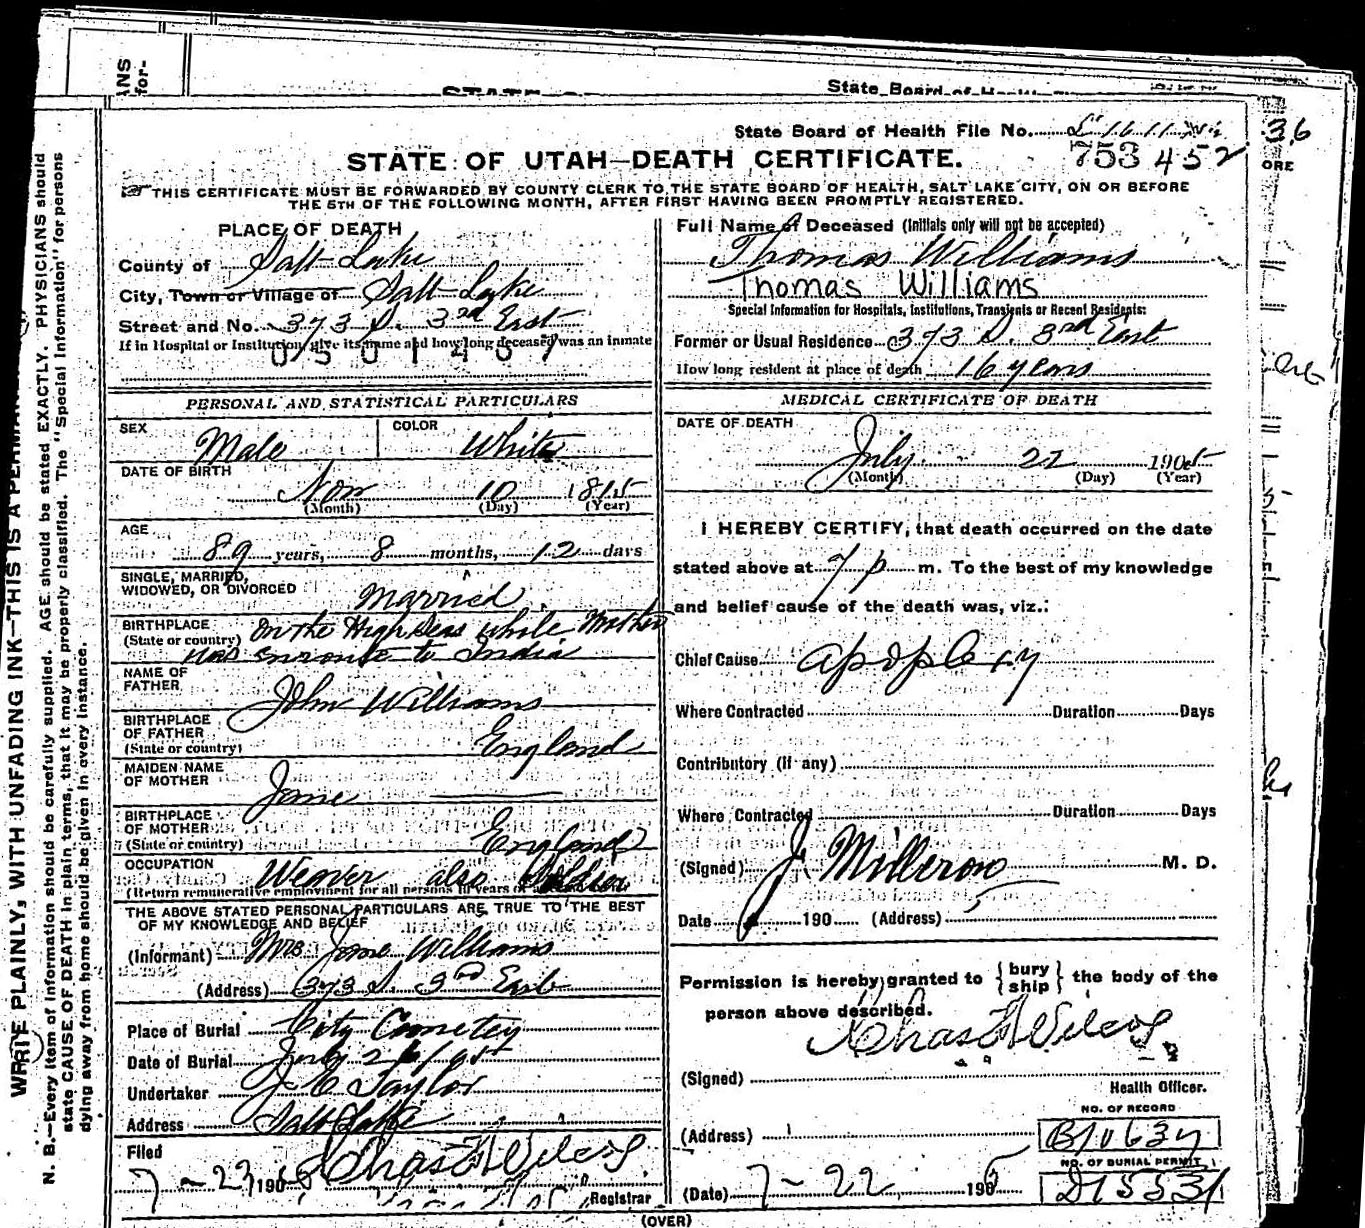 ANS
for-
State Board of Health
36
ORE
WRITE PLAINLY, WITH UNFADING INK—THIS IS A PERMAN
N. B.—Every item of information should be carefully supplied. AGE should be stated EXACTLY. PHYSICIANS should
state CAUSE OF DEATH in plain terms, that it may be properly classified. The "Special Information" for persons
dying away from home should be given in every instance.
State Board of Health File No.
STATE OF UTAH—DEATH CERTIFICATE.
753 452
THIS CERTIFICATE MUST BE FORWARDED BY COUNTY CLERK TO THE STATE BOARD OF HEALTH, SALT LAKE CITY, ON OR BEFORE
THE 5TH OF THE FOLLOWING MONTH, AFTER FIRST HAVING BEEN PROMPTLY REGISTERED.
PLACE OF DEATH
County of Salt Lake
City, Town or Village of Salt Lake
Street and No. 373 S. 3rd East
If in Hospital or Institution, give its name and how long deceased was an inmate
0501457
PERSONAL AND STATISTICAL PARTICULARS
SEX Male
COLOR White
DATE OF BIRTH
Nov 10 1815
(Month) (Day) (Year)
AGE
89 years, 8 months, 12 days
SINGLE, MARRIED,
WIDOWED, OR DIVORCED Married
BIRTHPLACE On the High Seas while Mother
(State or country)
was enroute to India
NAME OF
FATHER John Williams
BIRTHPLACE
OF FATHER
(State or country) England
MAIDEN NAME
OF MOTHER Jane
BIRTHPLACE
OF MOTHER
(State or country) England
OCCUPATION Weaver also Soldier
(Return remunerative employment for all persons 10 years or
THE ABOVE STATED PERSONAL PARTICULARS ARE TRUE TO THE BEST
OF MY KNOWLEDGE AND BELIEF
(Informant) Mrs Jane Williams
(Address) 373 S. 3rd East
Place of Burial City Cemetery
Date of Burial July
Undertaker J E Taylor
Address Salt Lake
Filed
7-23 1905 Chas F Wilcox
Registrar
Full Name of Deceased (Initials only will not be accepted)
Thomas Williams
Thomas Williams
Special Information for Hospitals, Institutions, Transients or Recent Residents:
Former or Usual Residence 373 S. 3rd East
How long resident at place of death 16 years
MEDICAL CERTIFICATE OF DEATH
DATE OF DEATH
July 22 1905
(Month) (Day) (Year)
I HEREBY CERTIFY, that death occurred on the date
stated above at 7 p m. To the best of my knowledge
and belief cause of the death was, viz.:
Chief Cause apoplexy
Where Contracted Duration Days
Contributory (if any)
Where Contracted Duration Days
(Signed) J. M. D.
Date 190 (Address)
Permission is hereby granted to {bury ship} the body of the
person above described.
Chas F Wilcox
(Signed)
Health Officer.
NO. OF RECORD
(Address) B10637
NO. OF BURIAL PERMIT
(Date) 7-22 1905 D15531
(OVER)